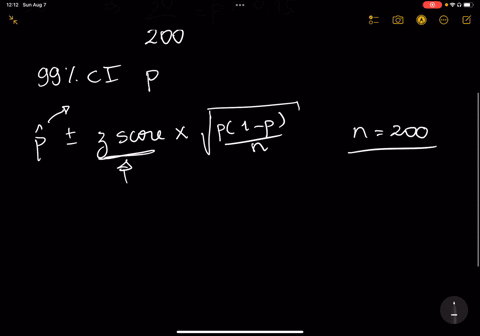 12:12 Sun Aug 7
200
99% CI p
p̂ ± z score × √(p(1-p)/n) n = 200